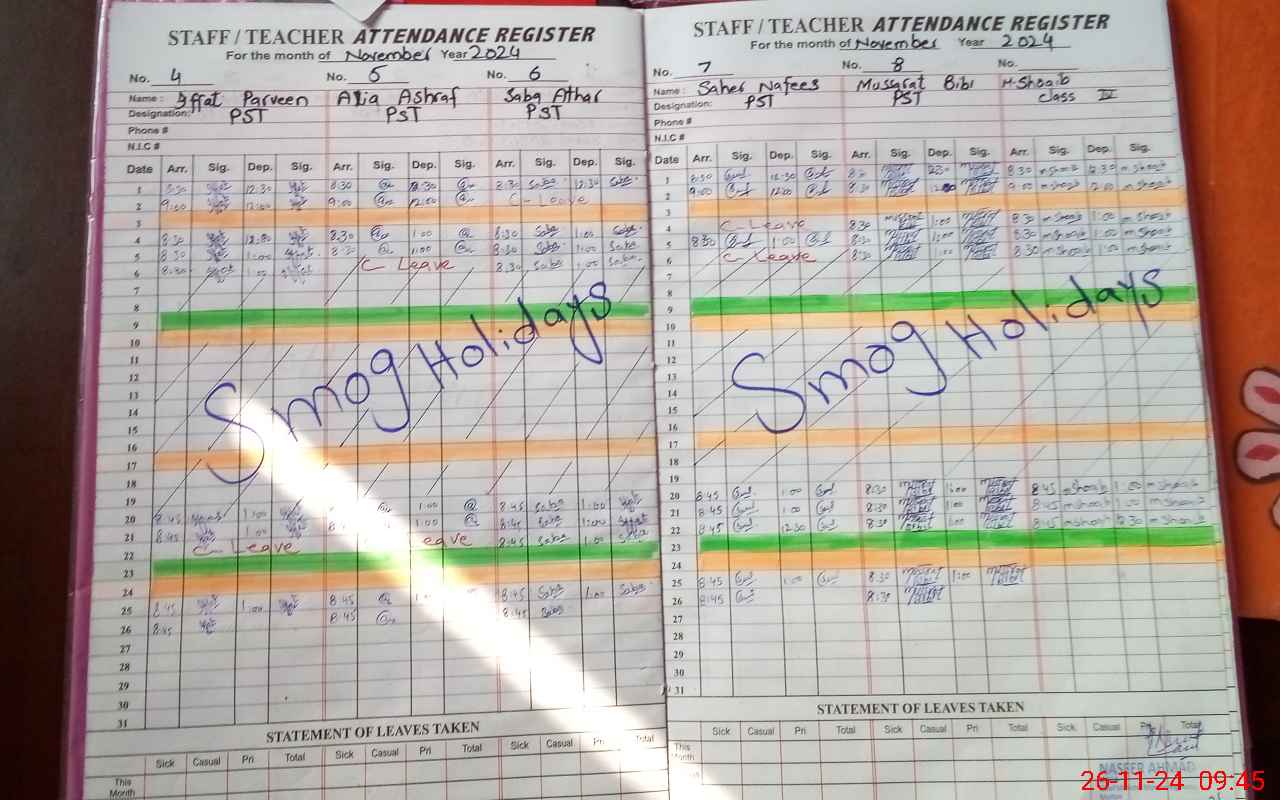 STAFF / TEACHER ATTENDANCE REGISTER
For the month of November Year 2024
No. 4 No. 5 No. 6
Name: Iffat Parveen Alia Ashraf Saba Athar
Designation: PST PST PST
Phone #
N.I.C #
Date Arr. Sig. Dep. Sig. Arr. Sig. Dep. Sig. Arr. Sig. Dep. Sig.
1 8:30 12:30 8:30 12:30 8:30 Saba 12:30 Saba
2 9:00 12:00 9:00 12:00 C-Leave
3
4 8:30 8:30 1:00 8:30 Saba 1:00 Saba
5 8:30 1:00 8:30 1:00 8:30 Saba 1:00 Saba
6 8:30 1:00 C-Leave 8:30 Saba 1:00 Saba
7
8
9
10
11
12
13
14
15
16
17
18
Smog Holidays
19
20 8:45 1:00 1:00 8:45 Saba 1:00
21 8:45 1:00 1:00 8:45 Saba 1:00
22 C-Leave eave 8:45 Saba 1:00
23
24
25 8:45 1:00 8:45 8:45 Saba 1:00 Saba
26 8:45 8:45 8:45 Saba
27
28
29
30
31
STATEMENT OF LEAVES TAKEN
Sick Casual Pri Total Sick Casual Pri Total Sick Casual Pri Total
This Month
STAFF / TEACHER ATTENDANCE REGISTER
For the month of November Year 2024
No. 7 No. 8 No.
Name: Saher Nafees Mussarat Bibi M-Shoaib
Designation: PST PST Class IV
Phone #
N.I.C #
Date Arr. Sig. Dep. Sig. Arr. Sig. Dep. Sig. Arr. Sig. Dep. Sig.
1 8:30 12:30 8:30 12:30 8:30 m shoaib 12:30 m shoaib
2 9:00 12:00 8:30 12:00 9:00 m shoaib 12:00 m shoaib
3
4 C-Leave 8:30 1:00 8:30 m shoaib 1:00 m shoaib
5 8:30 1:00 8:30 1:00 8:30 m shoaib 1:00 m shoaib
6 C-Leave 8:30 1:00 8:30 m shoaib 1:00 m shoaib
7
8
9
10
11
12
13
14
15
16
17
18
Smog Holidays
19
20 8:45 1:00 8:30 1:00 8:45 m shoaib 1:00 m shoaib
21 8:45 1:00 8:30 1:00 8:45 m shoaib 1:00 m shoaib
22 8:45 12:30 8:30 1:00 8:45 m shoaib 12:30 m shoaib
23
24
25 8:45 1:00 8:30 1:00
26 8:45 8:30
27
28
29
30
31
STATEMENT OF LEAVES TAKEN
Sick Casual Pri Total Sick Casual Pri Total Sick Casual Total
This Month
NASEER AHMAD
26-11-24 09:45